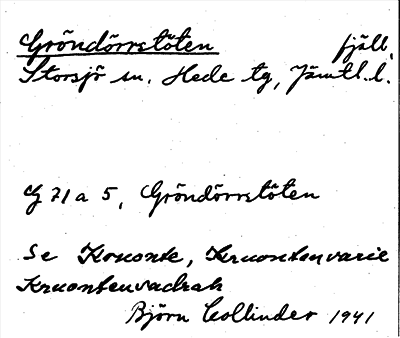 Gröndörrstöten fjäll,
Storsjö sn. Hede tg, Jämtl. l.
G 71 a 5, Gröndörrstöten
Se Kruonte, Kruontenvarie
Kruontenvadrah
Björn Collinder 1941